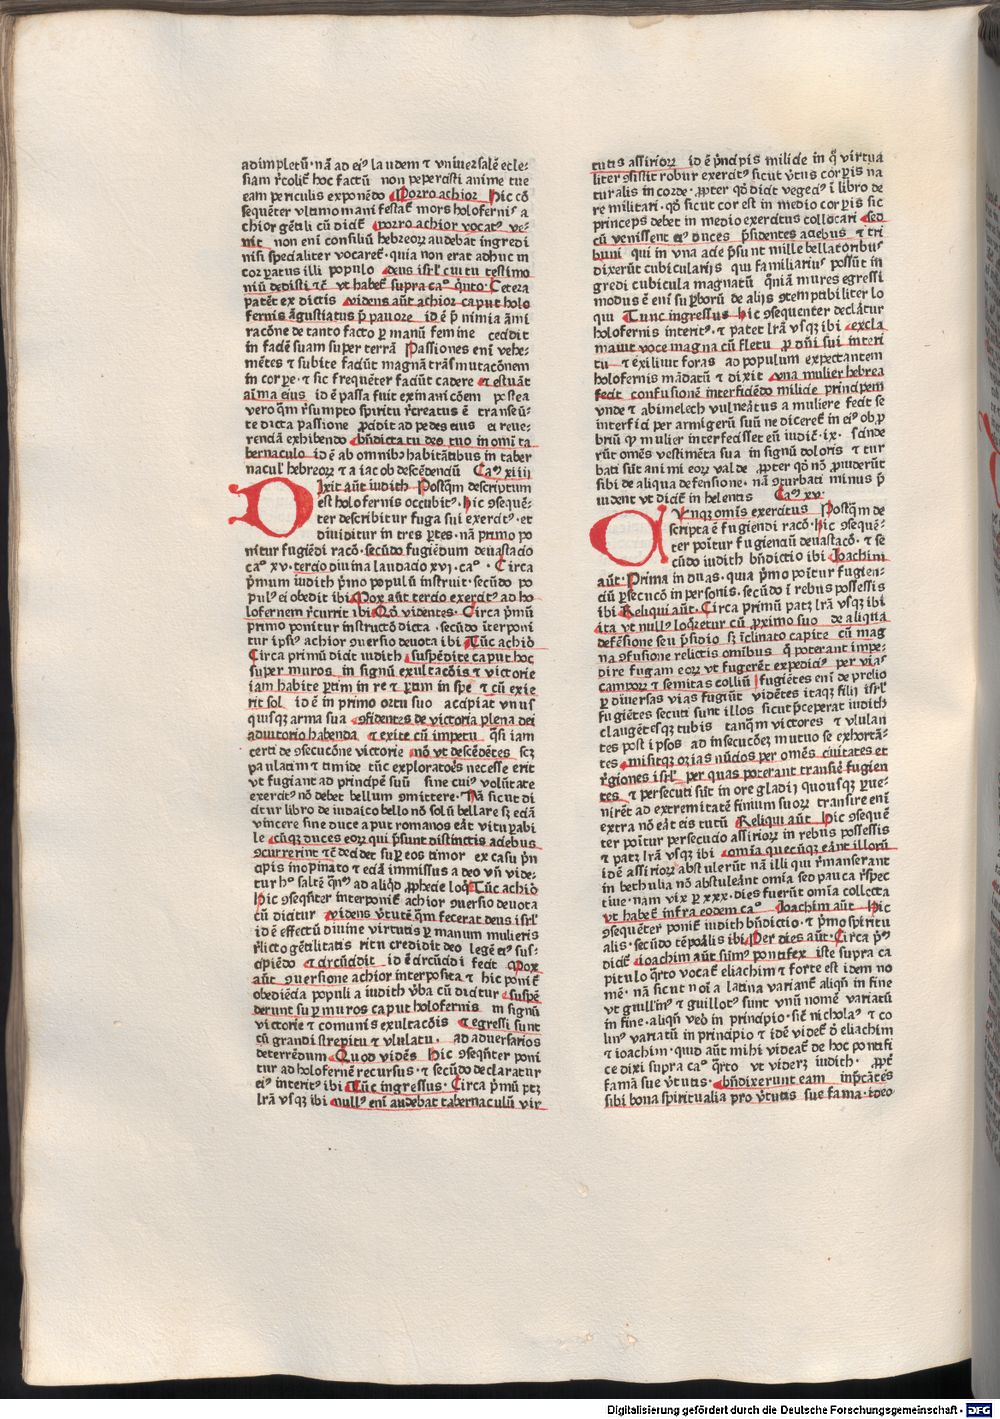 adimpletū·nā ad ei⁹ laudem ⁊ vniuersalē ecle-
siam r̄colit᷑ hoc factū non pepercisti anime tue
eam periculis exponēdo Porro achior Hic cō
sequēter vltimo manifestat᷑ mors holofernis a
chior gētili cū dicit᷑ porro achior vocat⁹ ve-
nit non enī consiliū hebreoꝝ audebat ingredi
nisi specialiter vocaret᷑·quia non erat adhuc in
corporatus illi populo deus isrl̄ cui tu testimo
niū dedisti ⁊c̄ vt habet᷑ supra ca⁰ q̄nto·Cetera
patēt ex dictis videns aūt achior caput holo
fernis āgustiatus p̄ pauore id ē p̄ nimia āmi
racōne de tanto facto ꝑ manū femine cecidit
in faciē suam super terrā Passiones enī vehe-
mētes ⁊ subite faciūt magnā trāsmutacōnem
in corpe·⁊ sic frequēter faciūt cadere ⁊ estuāt
aīma eius id ē passa fuit eximanicōem postea
vero qm̄ r̄sumpto spiritu r̄creatus ē transeū-
te dicta passione ꝓcidit ad pedes eius ei reue-
renciā exhibendo bn̄dicta tu deo tuo in omī ta
bernaculo id ē ab omnibꝫ habitātibus in taber
nacul᷑ hebreoꝝ ⁊ a iacob descēdenciū Ca⁰ xiiij
DIxit aūt iudith Postq̄m descriptum
est holofernis occubit⁹·Hic ꝯsequē-
ter describitur fuga sui exercit⁹·et
diuiditur in tres ꝑtes·nā primo po
nitur fugiēdi racō·secūdo fugiēdum deuastacio
ca⁰ xv·tercio diuina laudacio xvj·ca⁰·Circa
p̄mum iudith p̄mo populū instruit·secūdo po
pul⁹ ei obedit ibi Mox aūt tercio exercit⁹ ad ho
lofernem r̄currit ibi Qd̄ videntes·Circa p̄mū
primo ponitur instructō dicta·secūdo īterponi
tur ipsi⁹ achior ꝯuersio deuota ibi Tūc achiō
Circa primū dicit iudith suspēdite caput hoc
super muros in signū exultacōis ⁊ victorie
iam habite ꝑtim in re ⁊ ꝑtim in spe ⁊ cū exie
rit sol id ē in primo ortu suo accipiat vnus
quisqꝫ arma sua ꝯfidentes de victoria plena dei
adiutorio habenda ⁊ exite cū impetu q̄si iam
certi de ꝯsecucōne victorie nō vt descēdētes scꝫ
paulatim ⁊ timide tūc exploratoēs necesse erit
vt fugiant ad principē suū sine cui⁹ volūtate
exercit⁹ nō debet bellum ꝯmittere·Nā sicut di
citur libro de iudaico bello nō solū bellare sꝫ eciā
vincere sine duce aput romanos eāt vitupabi
le cūqꝫ duces eoꝝ qui p̄sunt distinctis aciebus
ꝯcurrerint ⁊c̄ decidet suꝑ eos timor ex casu p̄n
cipis inopinato ⁊ eciā immissus a deo vn̄ vide-
tur h⁰ saltē q̄n⁹ ad aliq̄d ꝓphecie loq̄ Tūc achiō
Hic ꝯseqn̄ter interponit᷑ achior ꝯuersio deuota
cū dicitur videns v̄tutē qm̄ fecerat deus isrl̄
id ē effectū diuine virtutis ꝑ manum mulieris
r̄licto gētilitatis ritu credidit deo legē ei⁹ sus-
cipiēdo ⁊ circūcidit id ē circūcidi fecit Mox
aūt ꝯuersione achior interposita ⁊ hic ponit᷑
obediēcia populi a iudith v̄ba cū dicitur suspē
derunt suꝑ muros caput holofernis in signū
victorie ⁊ comunis exultacōis ⁊ egressi sunt
cū grandi strepitu ⁊ vlulatu· ad aduersarios
deterrēdum Quod vidēs Hic ꝯseqn̄ter poni
tur ad holofernē recursus·⁊ secūdo declaratur
ei⁹ interit⁹ ibi Tūc ingressus·Circa p̄mū ptꝫ
lr̄a vsqꝫ ibi null⁹ enī audebat tabernaculū vir
tutis assirioꝝ id ē p̄ncipis milicie in q̄ virtua
liter ꝯsistit robur exercit⁹ sicut v̄tus corpis na
turalis in corde·ꝓpter qd̄ dicit vegeci⁹ ī libro de
re militari·qd̄ sicut cor est in medio corpis sic
princeps debet in medio exercitus collocari sed
cū venissent ei⁹ duces p̄sidentes aciebus ⁊ tri
buni qui in vna acie p̄sunt mille bellatoribus
dixerūt cubicularijs qui familiarius possūt in
gredi cubicula magnatū q̄niā mures egressi
modus ē enī suꝑborū de alijs ꝯtemptibiliter lo
qui Tunc ingressus Hic ꝯsequenter declātur
holofernis interit⁹·⁊ patet lr̄a vsqꝫ ibi excla
mauit voce magna cū fletu ꝑ dn̄i sui interi
tu ⁊ exiliuit foras ad populum expectantem
holofernis mādatū ⁊ dixit vna mulier hebrea
fecit confusionē interficiēdo milicie principem
vnde ⁊ abimelech vulneātus a muliere fecit se
interfici per armigerū suū ne diceret᷑ in ei⁹ obꝓ
briū ꝙ mulier interfecisset eū iudic᷑·ix· scinde
rūt omēs vestimēta sua in signū doloris ⁊ tur
bati sūt animi eoꝝ valde ꝓpter qd̄ nō ꝓuiderūt
sibi de aliqua defensione·nā ꝯturbati minus p̄
uident vt dicit᷑ in helentis Ca⁰ xv·
CUnqꝫ omīs exercitus Postq̄m de
scripta ē fugiendi racō·Hic ꝯsequē-
ter poītur fugienciū deuastacō·⁊ se
cūdo iudith bn̄dictio ibi Joachim
aūt·Prima in duas·quia p̄mo poītur fugien-
ciū ꝑsecucō in personis·secūdo ī rebus possessis
ibi Reliqui aūt·Circa primū patꝫ lr̄a vsqꝫ ibi
ita vt null⁹ loq̄retur cū ꝓximo suo de aliqua
defēsione seu p̄sidio sꝫ īclinato capite cū mag
na ꝯfusione relictis omībus q̄ poterant impe-
dire fugam eoꝝ vt fugerēt expedici⁹ per vias
campoꝝ ⁊ semitas colliū fugiētes enī de prelio
ꝑ diuersas vias fugiūt vidētes itaqꝫ filij isrl̄
fugiētes secuti sunt illos sicut p̄ceperat iudith
claugētesqꝫ tubis tanq̄m victores ⁊ vlulan
tes post ipsos ad insecucōeꝫ mutuo se exhortā-
tes misitqꝫ ozias nūcios per omēs ciuitates et
r̄giones isrl̄ per quas poterant transiē fugien
tes ⁊ persecuti sūt in ore gladij quousqꝫ ꝑue-
nirēt ad extremitatē finium suoꝝ transire enī
extra nō eāt eis tutū Reliqui aūt Hic ꝯsequē
ter poītur persecucio assirioꝝ in rebus possessis
⁊ patꝫ lr̄a vsqꝫ ibi omīa quecūqꝫ eānt illorū
id ē assirioꝝ abstulerūt nā illi qui r̄manserant
in bethulia nō abstuleānt omīa sed pauca r̄spec
tiue·nam vix ꝑ xxx·dies fuerūt omīa collecta
vt habet᷑ infra eodem ca⁰ Joachim aūt Hic
ꝯsequēter ponit᷑ iudith bn̄dictio·⁊ p̄mo spiritu
alis·secūdo tēpoālis ibi Per dies aūt·Circa p̄⁰
dicit᷑ ioachim aūt sūm⁹ pontifex iste supra ca
pitulo q̄rto vocat᷑ eliachim ⁊ forte est idem no
mē·nā sicut noīa latina variant᷑ aliqn̄ in fine
vt guillin⁹ ⁊ guillot⁹ sunt vnū nomē variatū
in fine·aliqn̄ veō in principio·sic᷑ nichola⁹ ⁊ co
lin⁹ variatū in principio ⁊ idē videt᷑ d̄ eliachim
⁊ ioachim·quid aūt mihi videat᷑ de hoc pontifi
ce dixi supra ca⁰ q̄rto vt videꝝ iudith· ꝓpt᷑
famā sue v̄tutis·bn̄dixerunt eam inp̄cātēs
sibi bona spiritualia pro v̄tutis sue fama·ideo
Digitalisierung gefördert durch die Deutsche Forschungsgemeinschaft - DFG